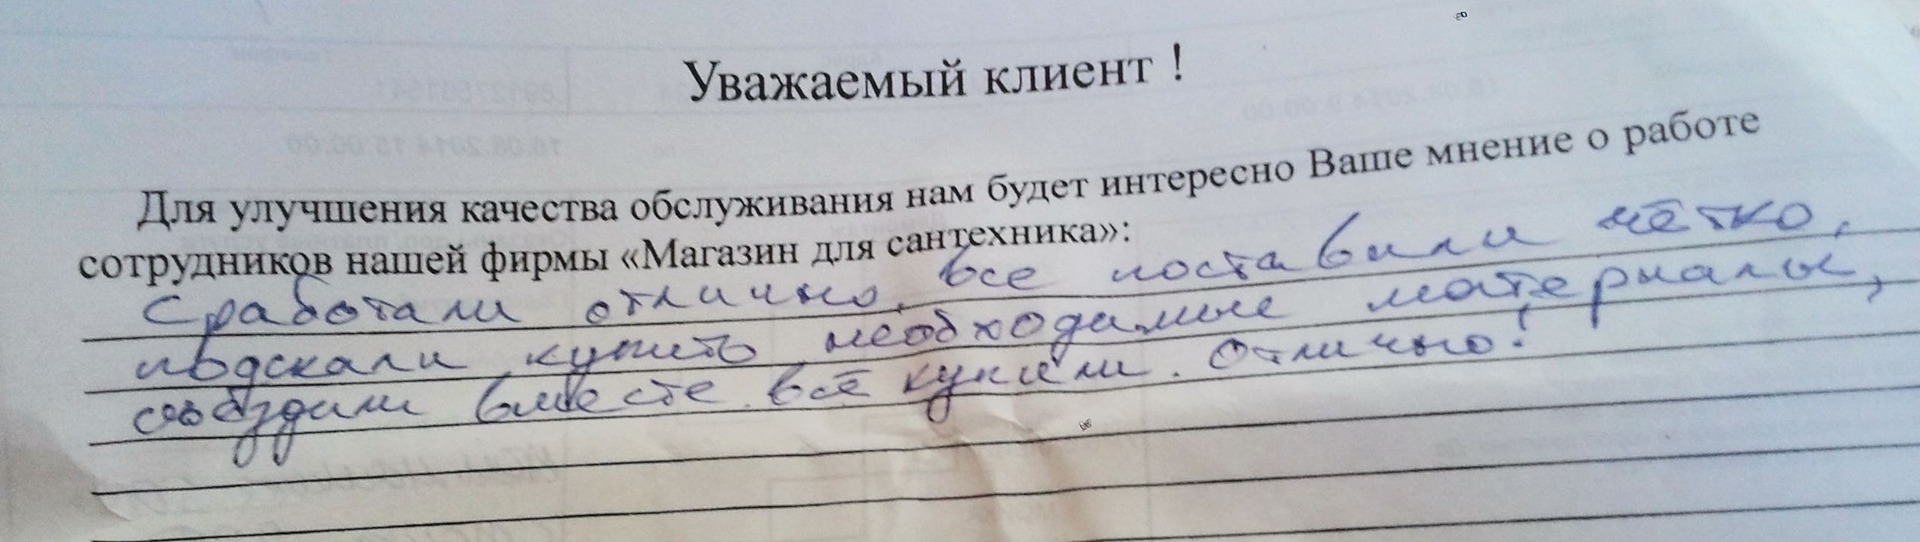 Уважаемый клиент !
Для улучшения качества обслуживания нам будет интересно Ваше мнение о работе
сотрудников нашей фирмы «Магазин для сантехника»:
Сработали отлично, все поставили чётко,
подскали купить необходимые материалы,
съездили вместе всё купили. Отлично!